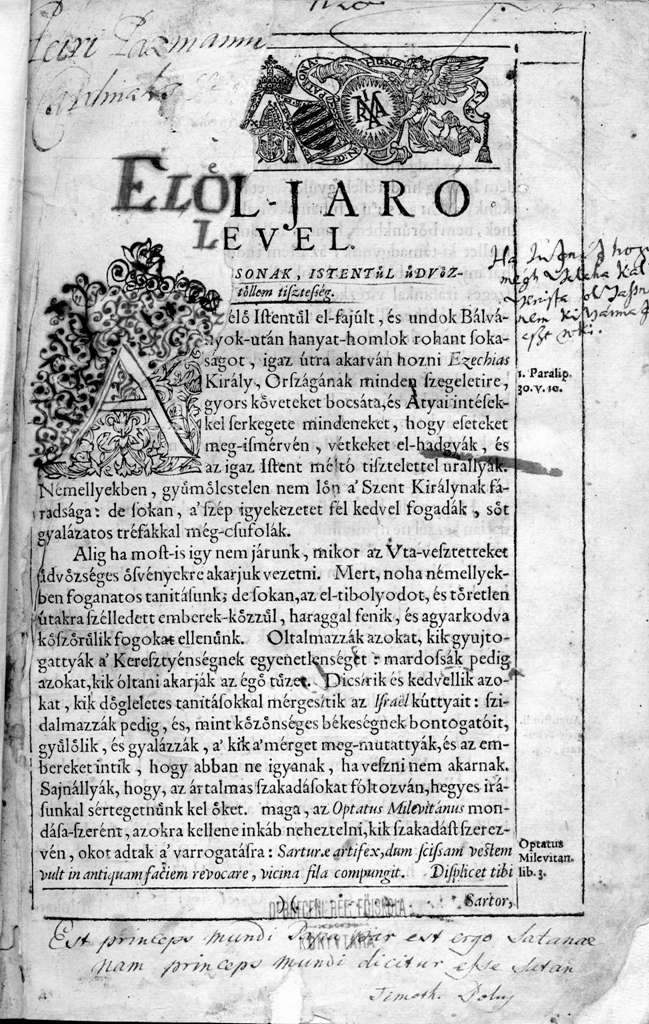 Petri Pazmanni
Cardinalis
ELÖL-JARO
LEVEL.
SONAK, ISTENTŰl ŭdvŏz-
tŏllem tiſzteſég.
AZ élő Iſtentűl el-fajúlt, és undok Bálvá-
nyok-után hanyat-homlok rohant ſoka-
ságot, igaz útra akatván hozni Ezechias
Király, Orſzágának minden ſzegeletire,
gyors kŏveteket bocsáta, és Atyai intések-
kel ſerkegete mindeneket, hogy eſeteket
meg-iſmérvén, vétkeket el-hadgyák, és
az igaz Iſtent méltó tiſztelettel urallyák.
Némellyekben, gyŭmŏlcstelen nem lŏn a' Szent Királynak fá-
radsága: de ſokan, a' ſzép igyekezetet fél kedvel fogadák, sŏt
gyalázatos tréfákkal még-csufolák.
Alig ha moſt-is igy nem járunk, mikor az Vta-veſztetteket
ŭdvŏzséges ŏsvényekre akarjuk vezetni. Mert, noha némellyek-
ben foganatos tanitáſunk; de ſokan, az el-tibolyodot, és tŏretlen
útakra ſzélledett emberek-kŏzzŭl, haraggal fenik, és agyarkodva
kŏſzŏrŭlik fogokat ellenŭnk. Oltalmazzák azokat, kik gyujto-
gattyák a' Kereſztyénségnek egyenetlenségét: mardoſsák pedig
azokat, kik óltani akarják az égŏ tŭzet. Dicsirik és kedvellik azo-
kat, kik dŏgleletes tanitáſokkal mérgesitik az Iſraël kúttyait: ſzi-
dalmazzák pedig, és, mint kŏzŏnséges békeségnek bontogatóit,
gyŭlŏlik, és gyalázzák, a' kik a' mérget meg-mutattyák, és az em-
bereket intik, hogy abban ne igyanak, ha veſzni nem akarnak.
Sajnállyák, hogy, az ártalmas ſzakadáſokat fóltozván, hegyes irá-
ſunkal ſértegetnŭnk kel ŏket. maga, az Optatus Milevitanus mon-
dáſa-ſzerént, azokra kellene inkáb neheztelni, kik ſzakadáſt ſzerez-
vén, okot adtak a' varrogatáſra: Sarturæ artifex, dum ſciſsam veſtem
vult in antiquam faciem revocare, vicina fila compungit. Diſplicet tibi
Sartor,
1. Paralip.
30. v. 10.
Optatus
Milevitan.
lib. 3.
DEBRECENI REF. FŐISKOLA
KÖNYVTÁRA
Est princeps mundi Papa par est ergo Satanae
Nam princeps mundi dicitur esse Satan